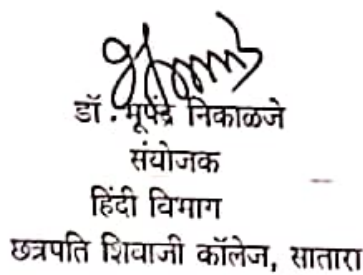 डॉ. भूपेंद्र निकाळजे
संयोजक
हिंदी विभाग
छत्रपति शिवाजी कॉलेज, सातारा